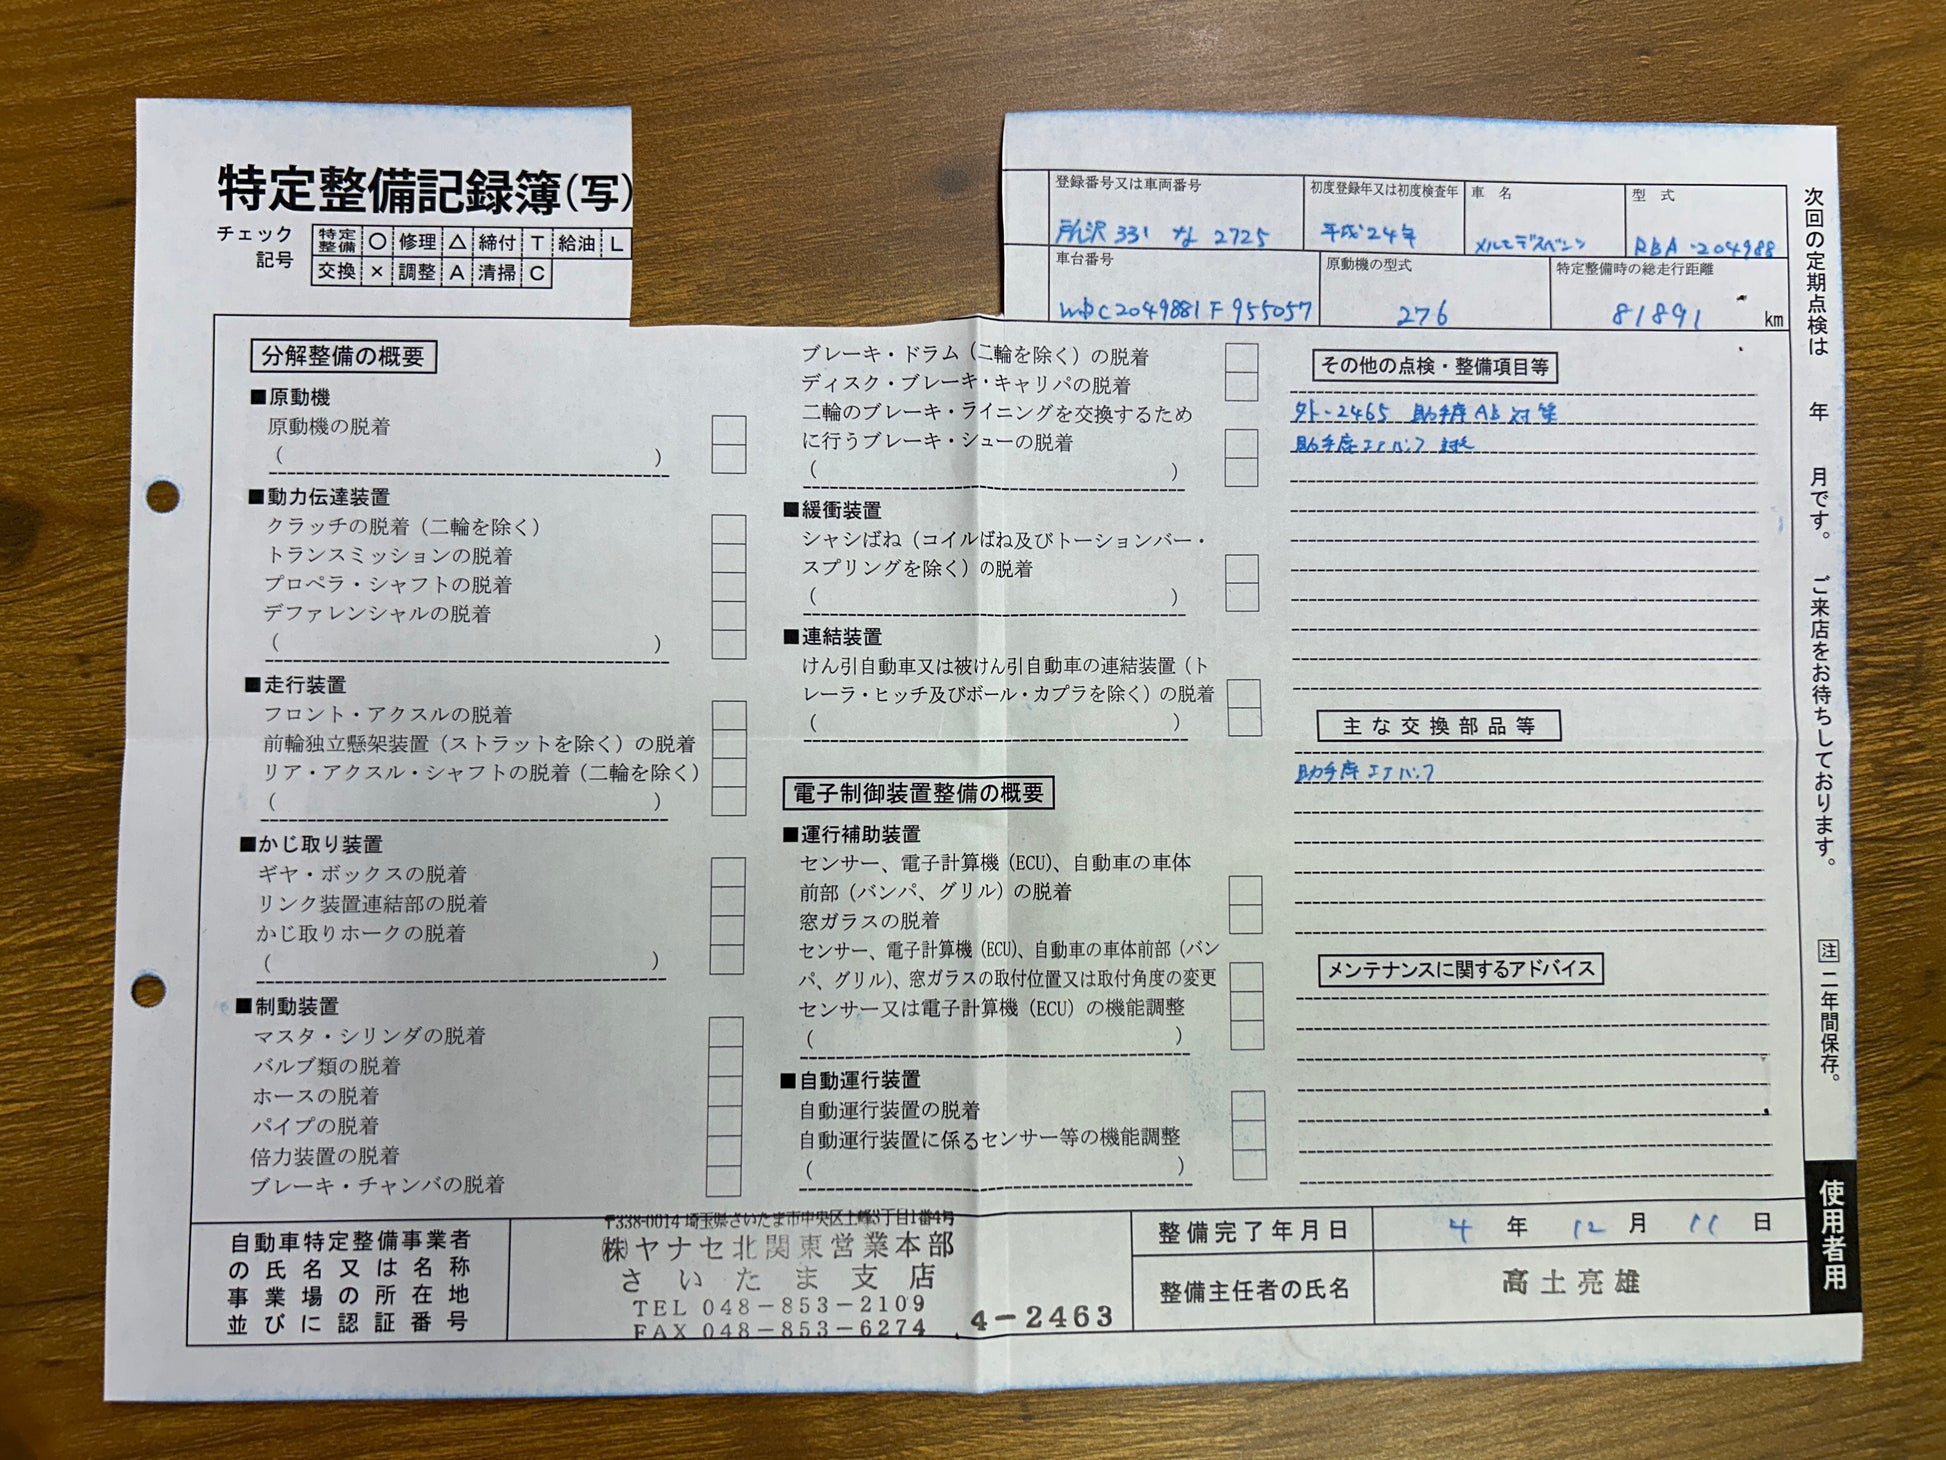 特定整備記録簿(写)
チェック記号
特定整備 ○ 修理 △ 締付 T 給油 L
交換 × 調整 A 清掃 C
登録番号又は車両番号 初度登録年又は初度検査年 車名 型式
所沢 331 な 2725 平成24年 メルセデスベンツ RBA-204988
車台番号 原動機の型式 特定整備時の総走行距離
WDC2049881F955057 276 81891 km
分解整備の概要
■原動機
原動機の脱着
( )
■動力伝達装置
クラッチの脱着(二輪を除く)
トランスミッションの脱着
プロペラ・シャフトの脱着
デファレンシャルの脱着
( )
■走行装置
フロント・アクスルの脱着
前輪独立懸架装置(ストラットを除く)の脱着
リア・アクスル・シャフトの脱着(二輪を除く)
( )
■かじ取り装置
ギヤ・ボックスの脱着
リンク装置連結部の脱着
かじ取りホークの脱着
( )
■制動装置
マスタ・シリンダの脱着
バルブ類の脱着
ホースの脱着
パイプの脱着
倍力装置の脱着
ブレーキ・チャンバの脱着
ブレーキ・ドラム(二輪を除く)の脱着
ディスク・ブレーキ・キャリパの脱着
二輪のブレーキ・ライニングを交換するため
に行うブレーキ・シューの脱着
( )
■緩衝装置
シャシばね(コイルばね及びトーションバー・
スプリングを除く)の脱着
( )
■連結装置
けん引自動車又は被けん引自動車の連結装置(ト
レーラ・ヒッチ及びボール・カプラを除く)の脱着
( )
電子制御装置整備の概要
■運行補助装置
センサー、電子計算機(ECU)、自動車の車体
前部(バンパ、グリル)の脱着
窓ガラスの脱着
センサー、電子計算機(ECU)、自動車の車体前部(バン
パ、グリル)、窓ガラスの取付位置又は取付角度の変更
センサー又は電子計算機(ECU)の機能調整
( )
■自動運行装置
自動運行装置の脱着
自動運行装置に係るセンサー等の機能調整
( )
その他の点検・整備項目等
外-2465 助手席AB対策
助手席エアバッグ
主な交換部品等
助手席エアバッグ
メンテナンスに関するアドバイス
次回の定期点検は 年 月です。 ご来店をお待ちしております。
注 二年間保存。
使用者用
自動車特定整備事業者
の氏名又は名称
事業場の所在地
並びに認証番号
〒338-0014 埼玉県さいたま市中央区上峰3丁目1番4号
(株)ヤナセ北関東営業本部
さいたま支店
TEL 048-853-2109
FAX 048-853-6274
4-2463
整備完了年月日 4 年 12 月 11 日
整備主任者の氏名 高土亮雄